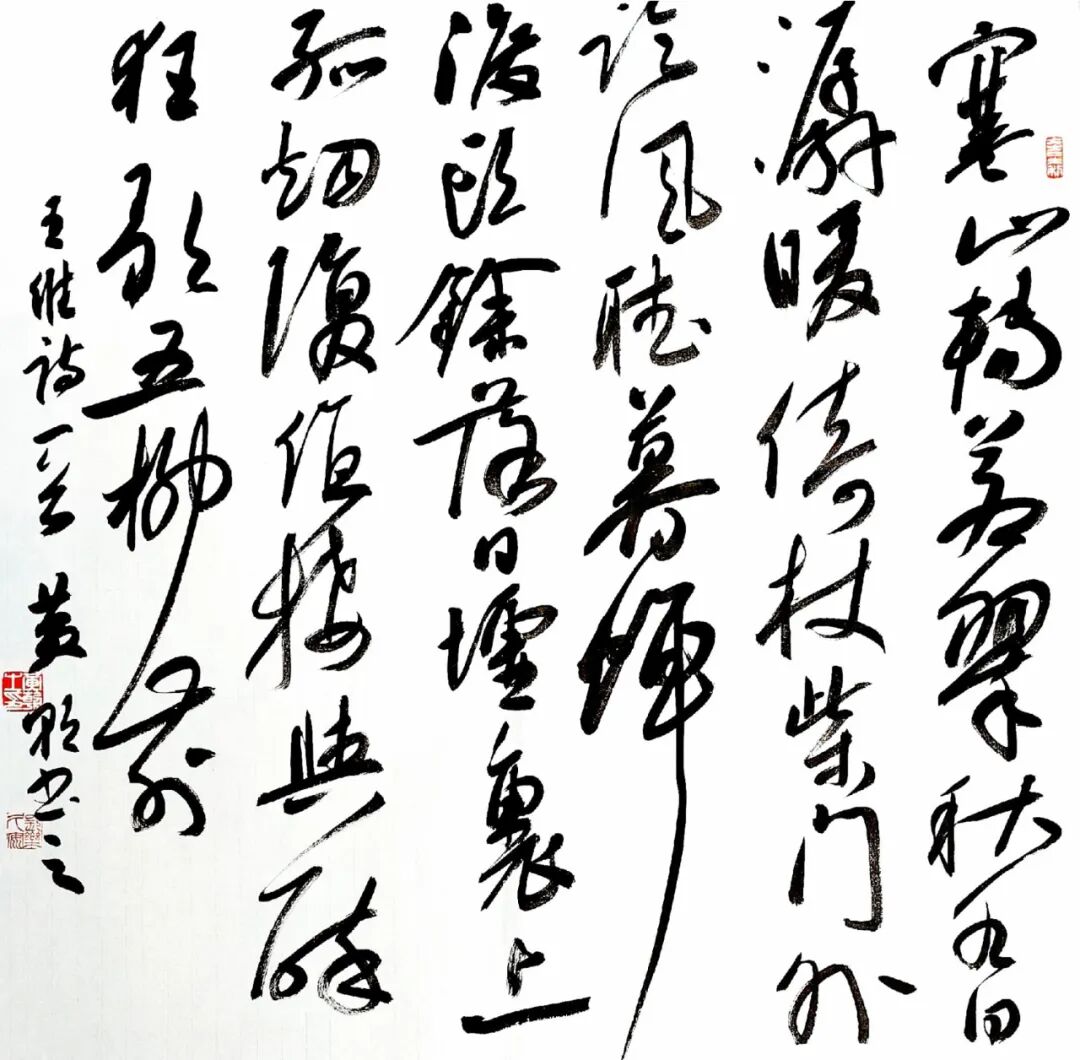 寒山轉蒼翠秋水日
潺湲倚杖柴门外
临风聴暮蝉
渡頭餘落日墟裏上
孤烟復值接輿醉
狂歌五柳前
王維诗一首 黄书之